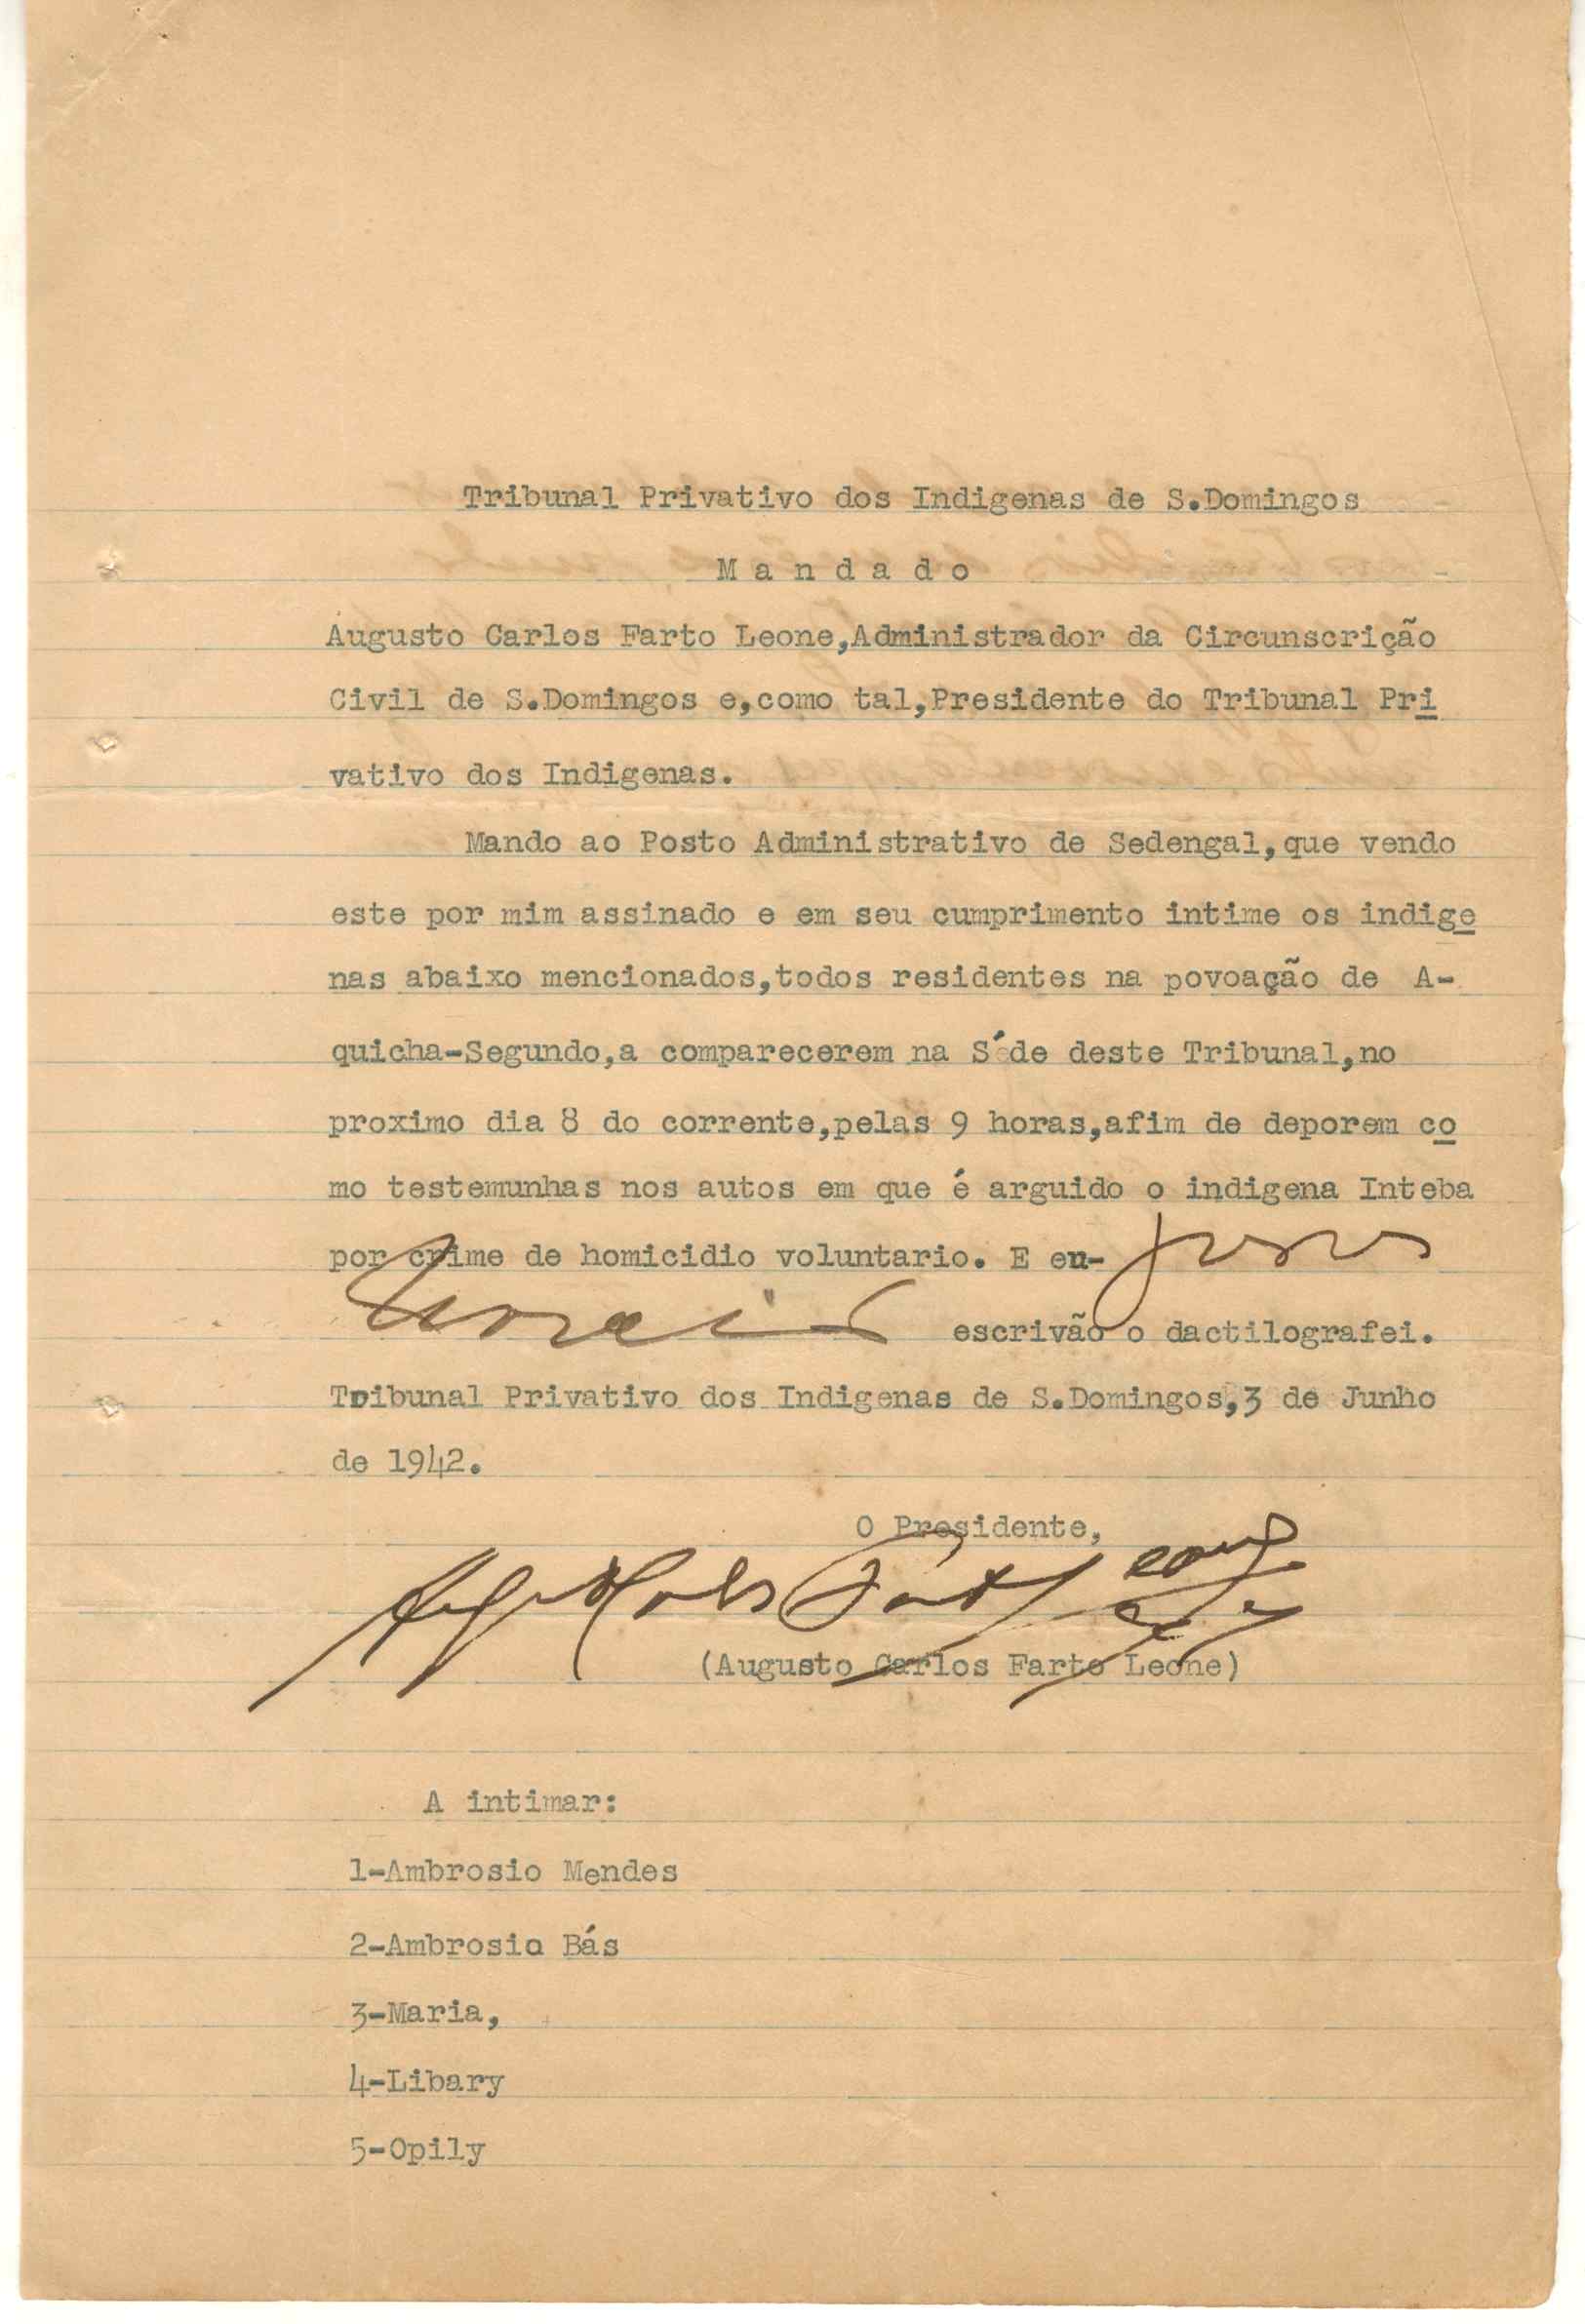 Tribunal Privativo dos Indigenas de S.Domingos
Mandado
Augusto Carlos Farto Leone,Administrador da Circunscrição
Civil de S.Domingos e,como tal,Presidente do Tribunal Pri
vativo dos Indigenas.
Mando ao Posto Administrativo de Sedengal,que vendo
este por mim assinado e em seu cumprimento intime os indige
nas abaixo mencionados,todos residentes na povoação de A-
quicha-Segundo,a comparecerem na Séde deste Tribunal,no
proximo dia 8 do corrente,pelas 9 horas,afim de deporem co
mo testemunhas nos autos em que é arguido o indigena Inteba
por crime de homicidio voluntario. E eu-
escrivão o dactilografei.
Tribunal Privativo dos Indigenas de S.Domingos,3 de Junho
de 1942.
O Presidente,
(Augusto Carlos Farto Leone)
A intimar:
1-Ambrosio Mendes
2-Ambrosia Bás
3-Maria,
4-Libary
5-Opily